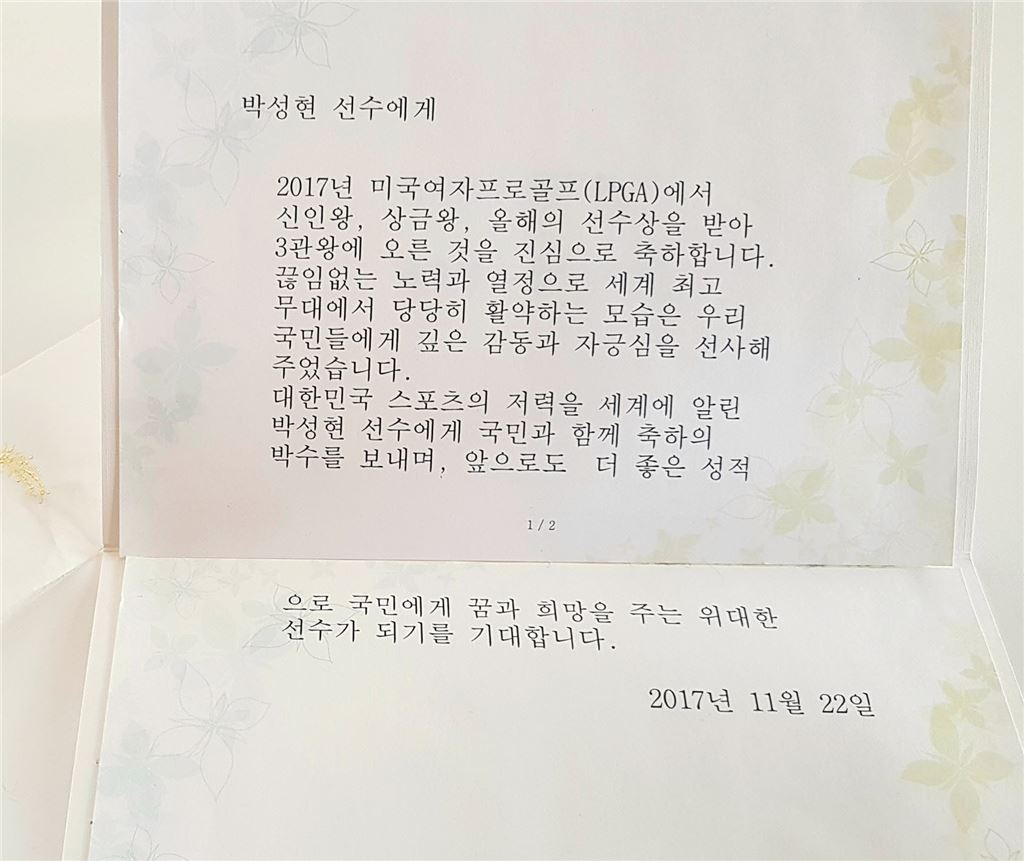 박성현 선수에게
2017년 미국여자프로골프(LPGA)에서
신인왕, 상금왕, 올해의 선수상을 받아
3관왕에 오른 것을 진심으로 축하합니다.
끊임없는 노력과 열정으로 세계 최고
무대에서 당당히 활약하는 모습은 우리
국민들에게 깊은 감동과 자긍심을 선사해
주었습니다.
대한민국 스포츠의 저력을 세계에 알린
박성현 선수에게 국민과 함께 축하의
박수를 보내며, 앞으로도 더 좋은 성적
1/2
으로 국민에게 꿈과 희망을 주는 위대한
선수가 되기를 기대합니다.
2017년 11월 22일